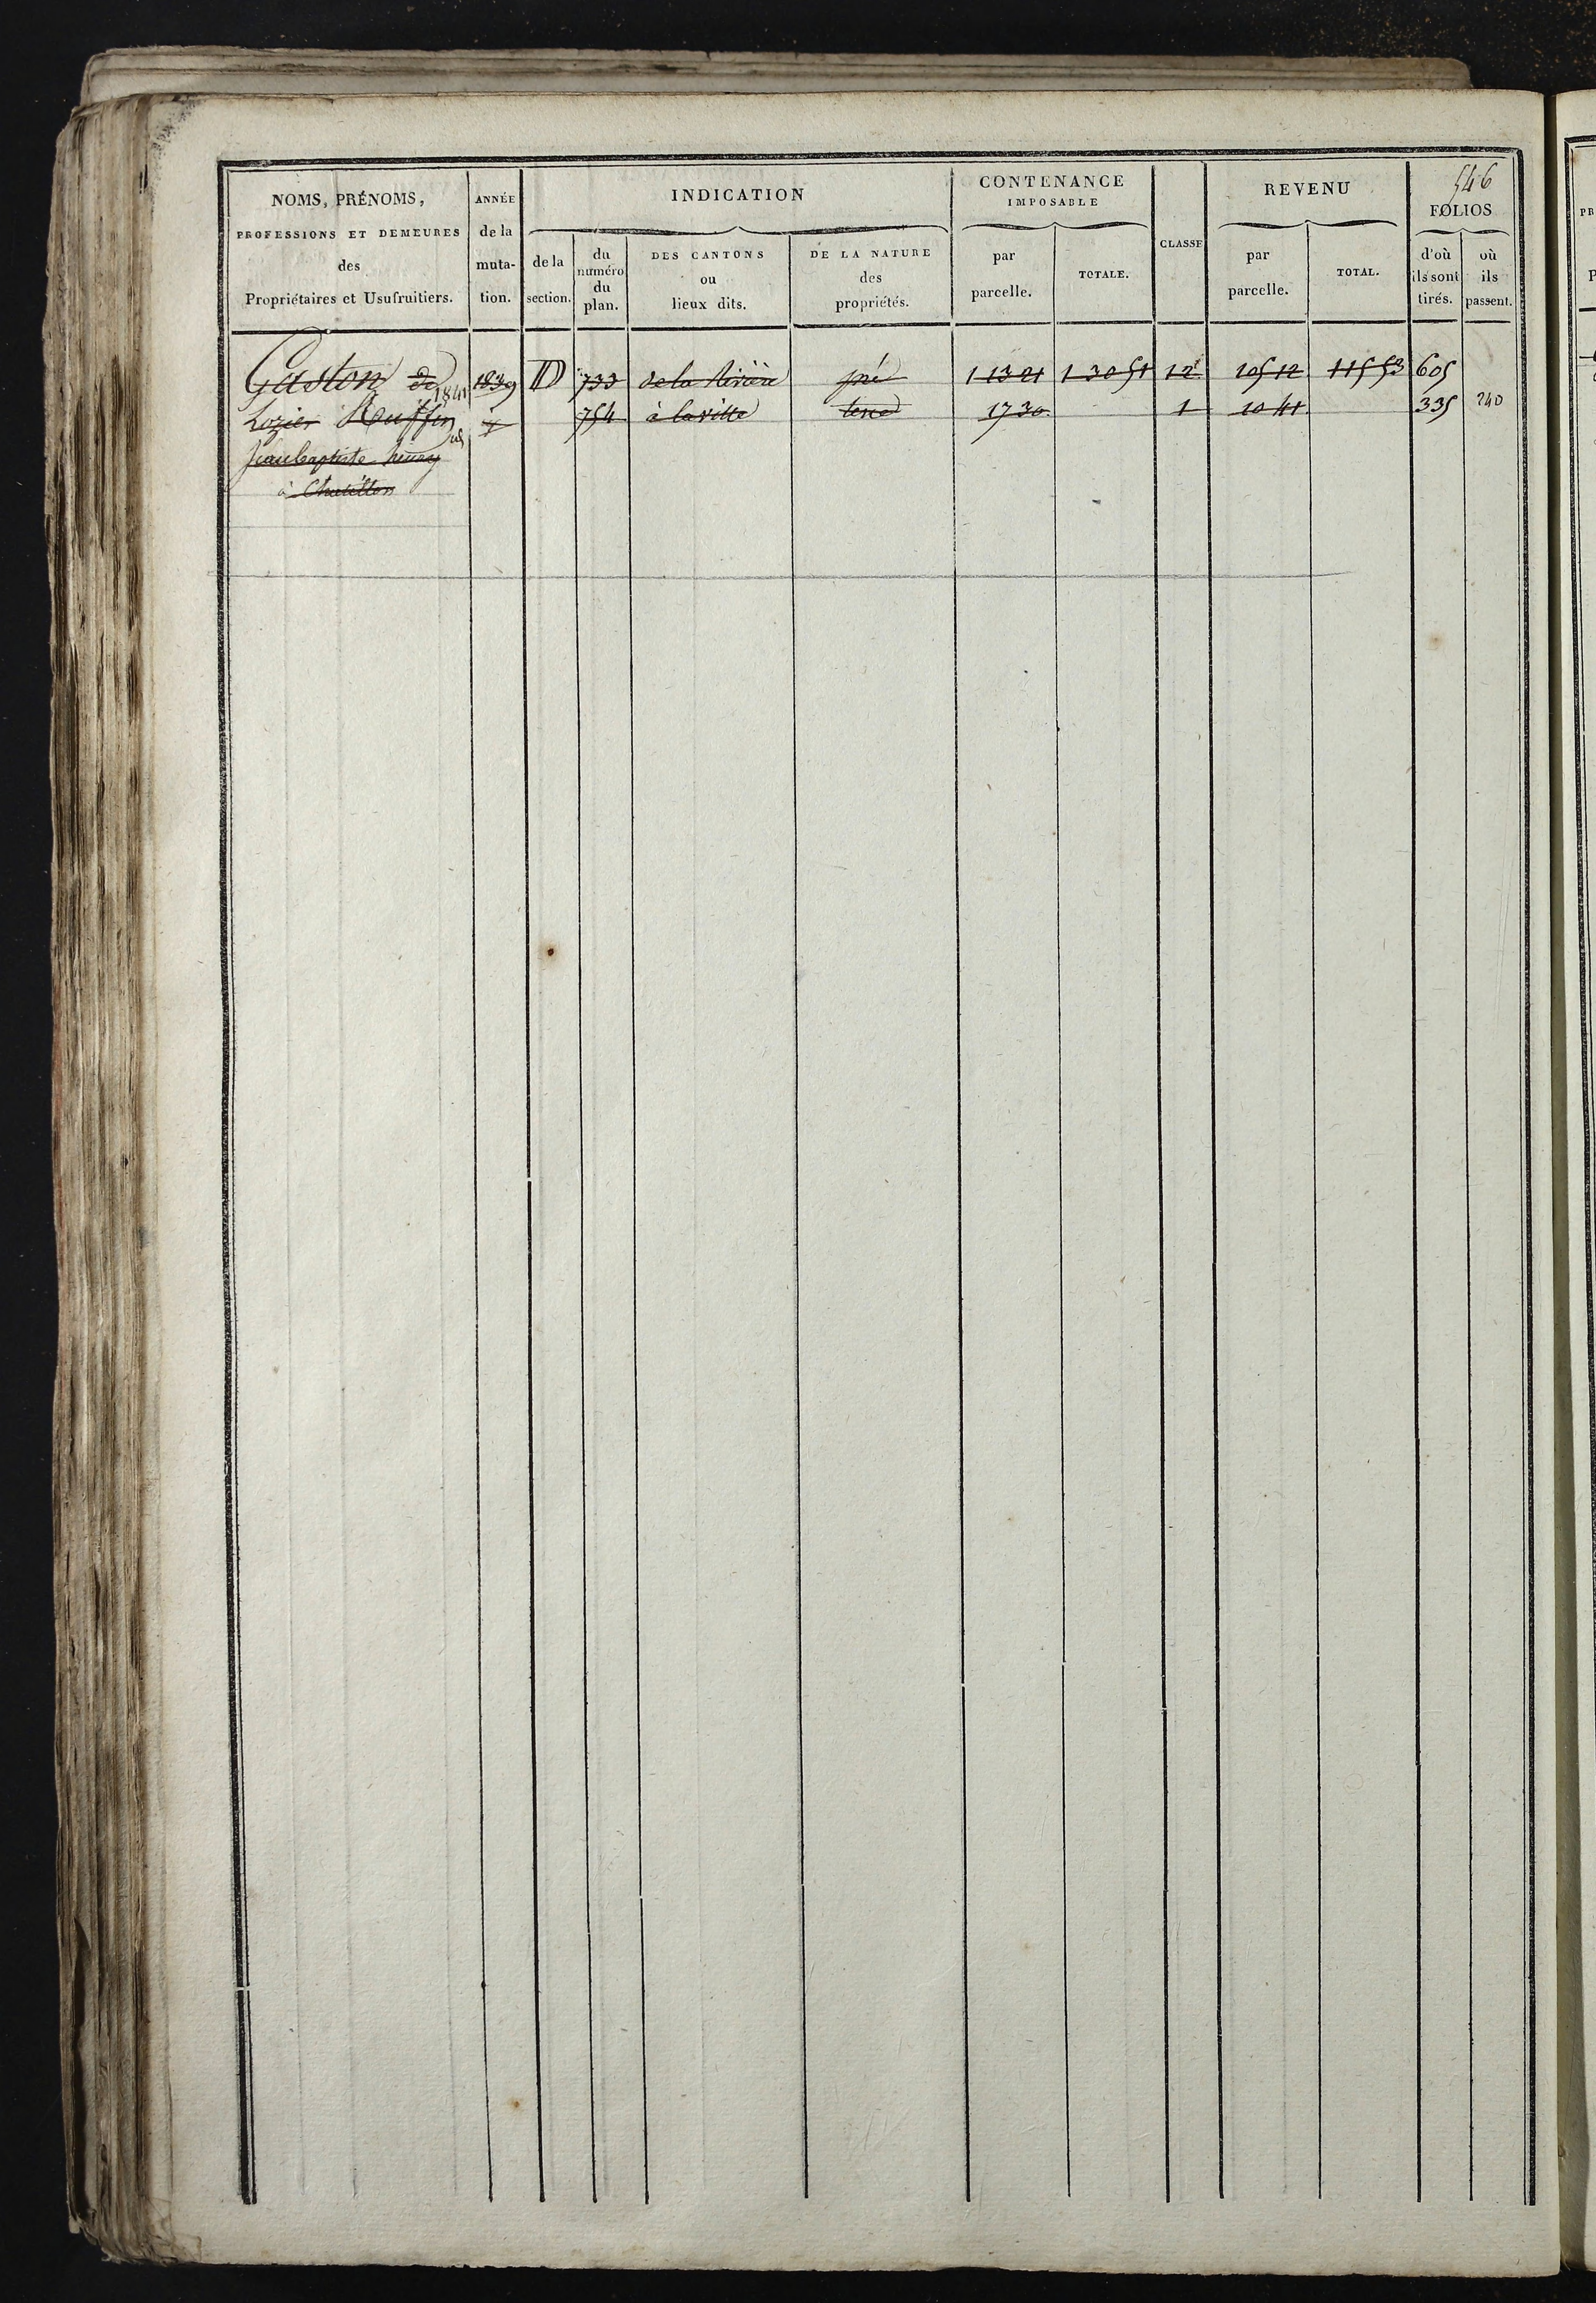 546
NOMS, PRÉNOMS,
PROFESSIONS ET DEMEURES
des
Propriétaires et Usufruitiers.
ANNÉE
de la
muta-
tion.
INDICATION
de la
section.
du
numéro
du
plan.
DES CANTONS
ou
lieux dits.
DE LA NATURE
des
propriétés.
CONTENANCE
IMPOSABLE
par
parcelle.
TOTALE.
CLASSE
REVENU
par
parcelle.
TOTAL.
FOLIOS
d'où
ils sont
tirés.
où
ils
passent.
Gaston de 1839 D 733 de la Rivière pré 1 13 21 1 30 51 12 105 12 115 53 605
1841
Lozier Rouffin 754 à la ville terre 17 30 1 10 41 335 240
Jean baptiste
à Chatillon